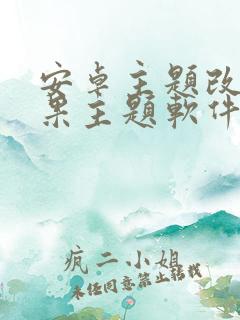 安卓主題改
果主題軟件
疯二小姐
未经同意禁止转载